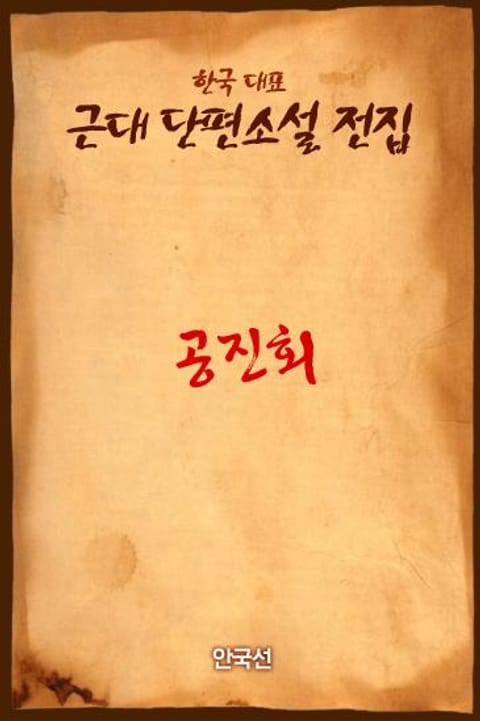 한국 대표
근대 단편소설 전집
공진회
안국선